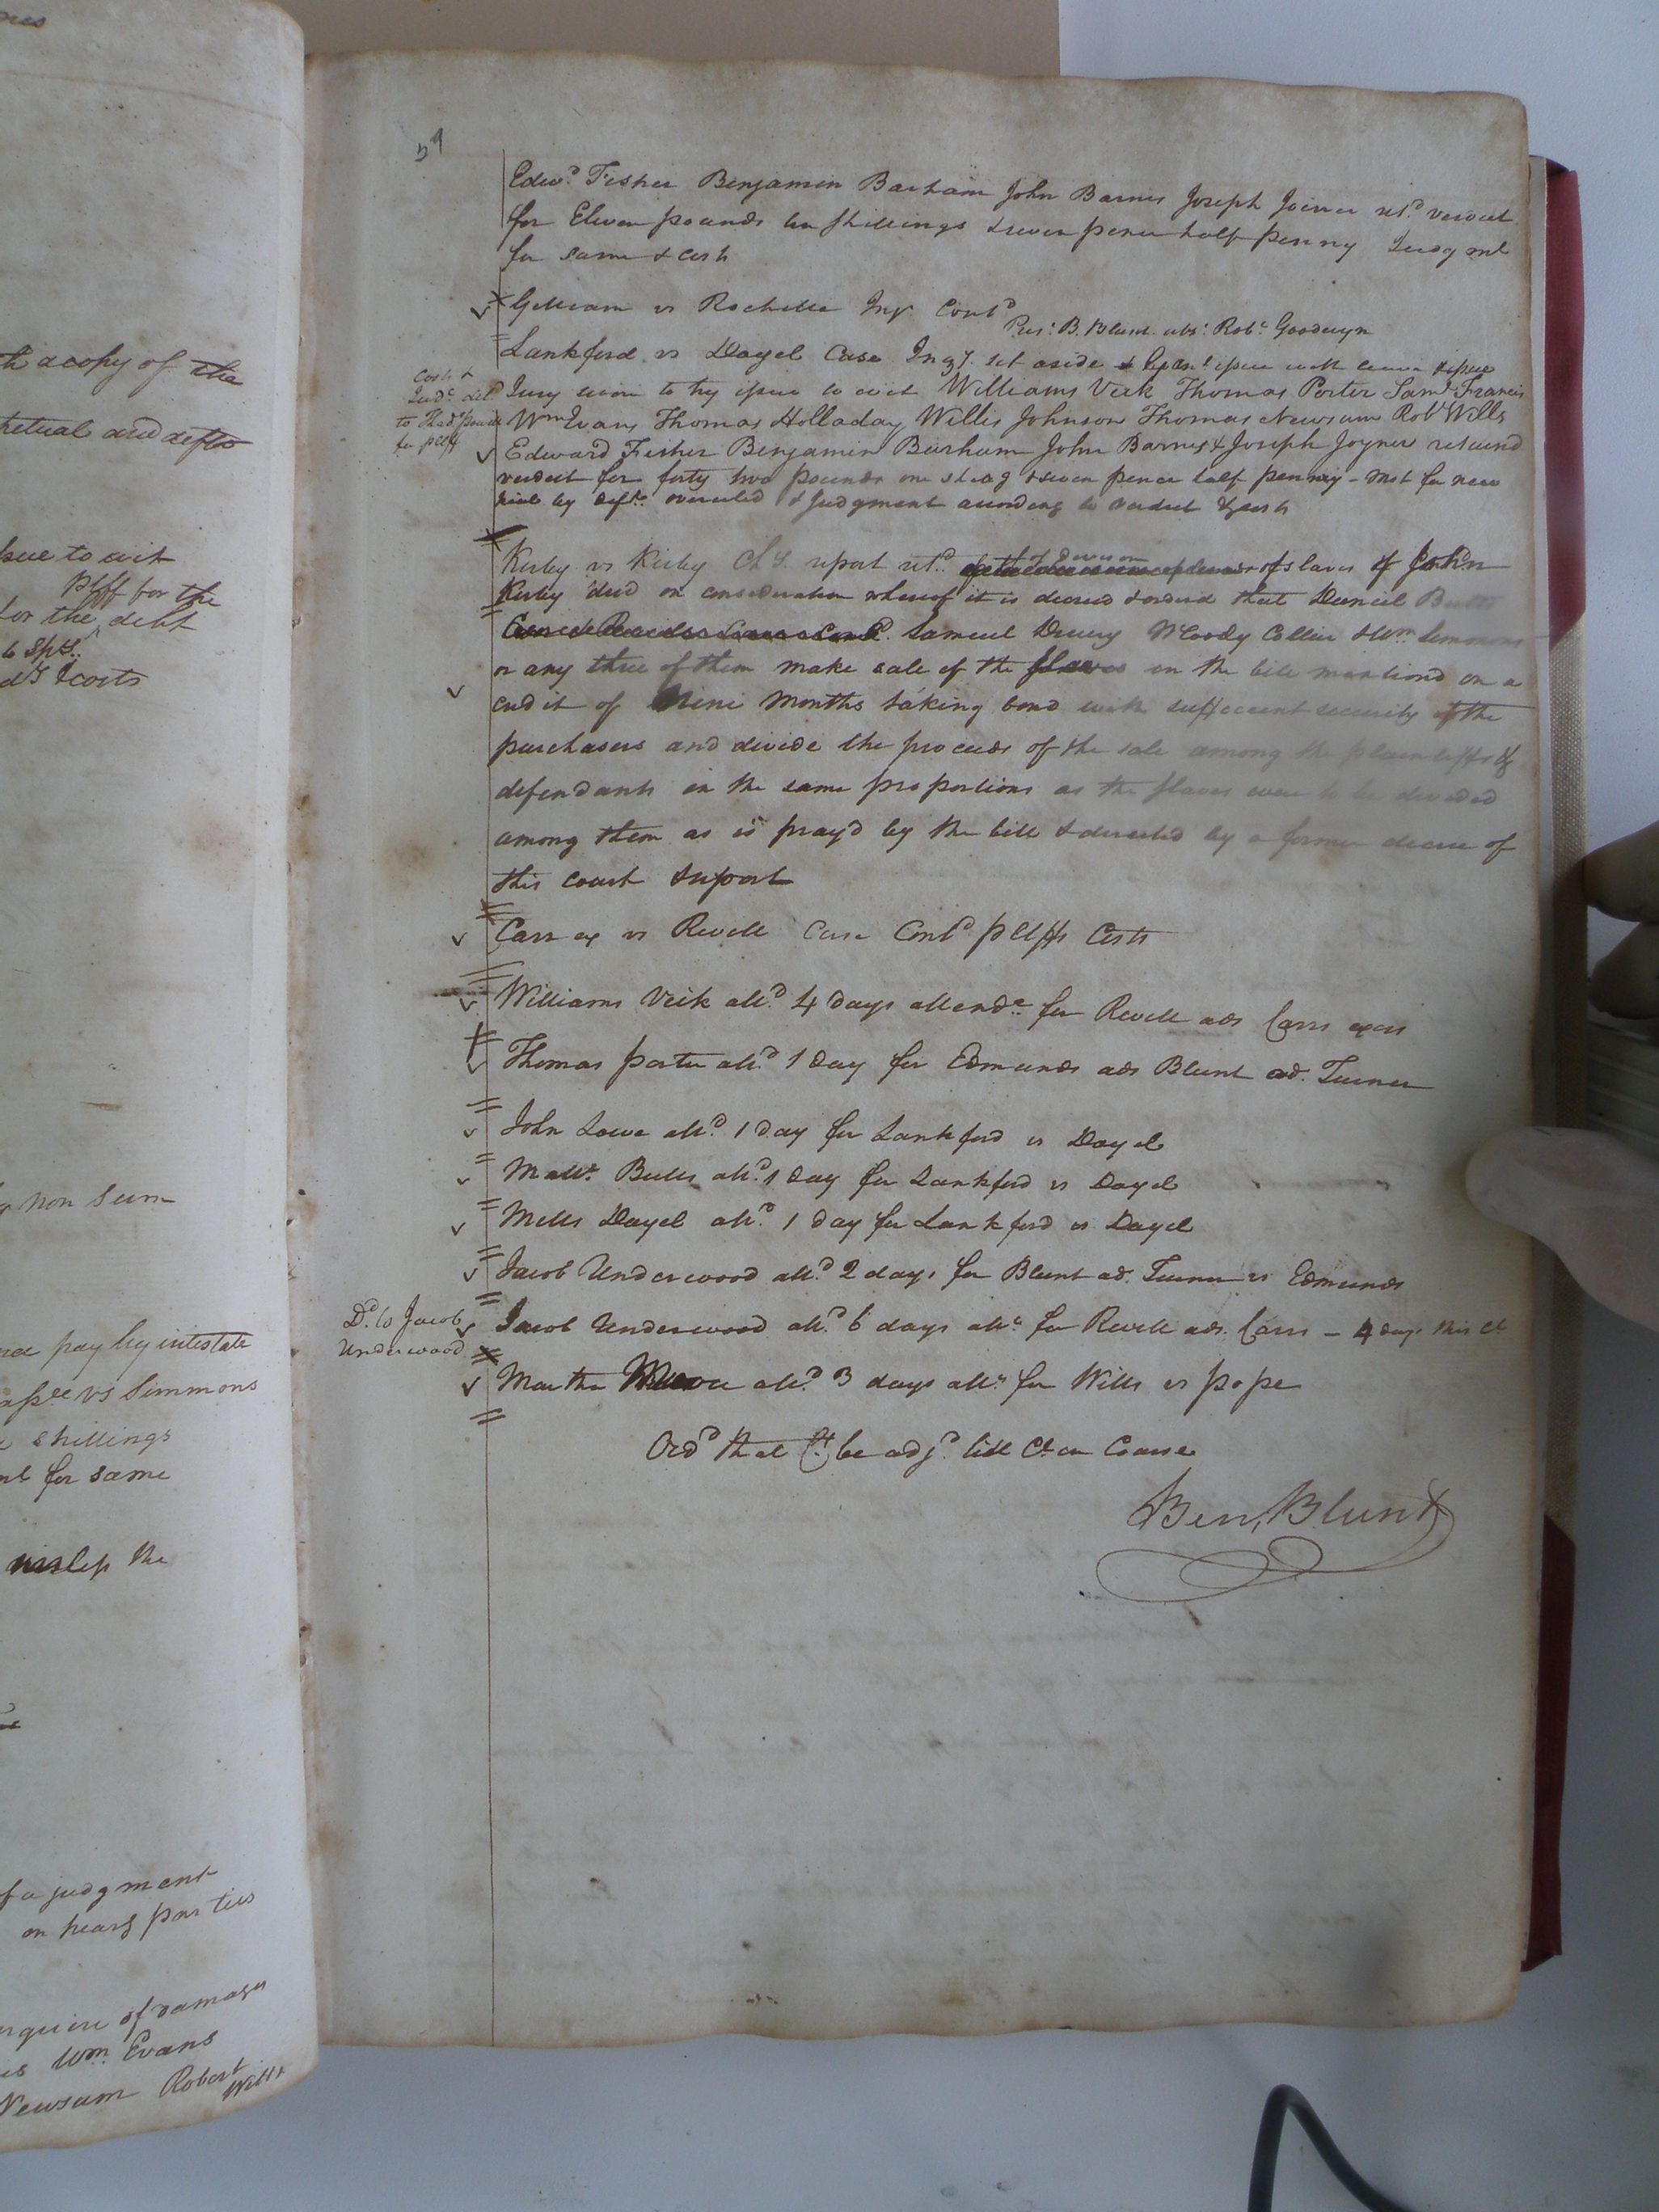 nes
th a copy of the
petual and defts
sue to wit
Pltff for the
for the debt
to Spts.
d's & costs
non sum
pay by intestate
vs Simmons
shillings
nt for same
the
of a judgment
on hearg parties
enquire of damages
is Wm. Evans
Newsam Robert
Wills
54
Edwd. Fisher Benjamin Barham John Barnes Joseph Joiner retd. verdict
for Eleven pounds ten shillings & seven pence half penny Judgmt
for same & costs
Gilliam vs Rochelle Inj Contd
Pres: B. Blunt. abs: Robt. Goodwyn
Lankford vs Dayel Case Inqy. set aside & issue with leave
Costs &
Judt. del
to
for pltff
Jury sworn to try issue to wit Williams Vick Thomas Porter Saml. Francis
Wm Evans Thomas Holladay Willis Johnson Thomas Newsum Robt Wills
Edward Fisher Benjamin Barham John Barnes & Joseph Joyner returnd
verdict for forty two pounds one shilg & seven pence half penny - mot for new
trial by defts. overruled & Judgment according to verdict & costs
Kirby vs Kirby Chy. report retd. of division of slaves of John
Kirby decd on consideration whereof it is decreed & orderd that Daniel Butts
Samuel Drury McCoody Collier & Wm Simmons
or any three of them make sale of the slaves in the bill mentiond on a
credit of Nine Months taking bond with sufficient security of the
purchasers and divide the proceeds of the sale among the plaintiffs &
defendants in the same proportions as the slaves were to be divided
among them as is pray'd by the bill & directed by a former decree of
this court & report
Carr ex vs Revell Case Contd pltffs Costs
Williams Vick attd. 4 days attende. for Revell ads Carrs exors
Thomas porter attd. 1 day for Edmunds ads Blunt ad. Turner
John Lowe attd. 1 day for Lankford vs Dayel
Mattw. Butts attd. 1 day for Lankford vs Dayel
Mills Dayel attd. 1 day for Lankford vs Dayel
Jacob Underwood attd. 2 days for Blunt ad. Turner vs Edmunds
Dd. to Jacob
Underwood
Jacob Underwood attd. 6 days atte. for Revell ads. Carrs - 4 days this Ct
Martha attd. 3 days atte. for Wills vs pope
Ordd that Ct. be adjd. till Ct. in Course
Ben, Blunt